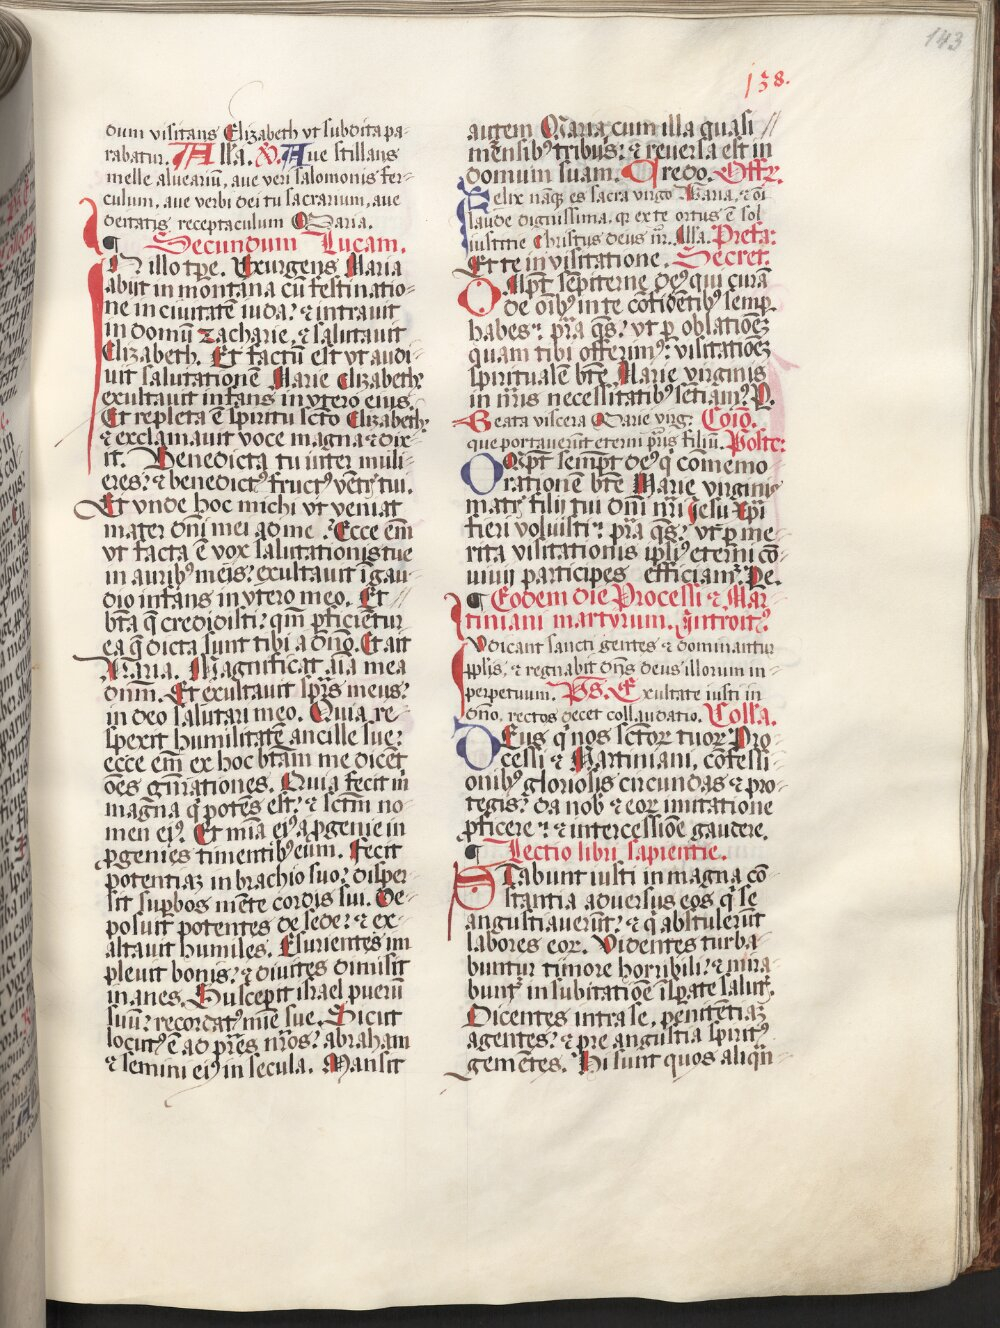 143
138.
dum visitans Elizabeth vt subdita pa-
rabatur. Alla. V. Aue stillans
melle alueariū, aue veri salomonis fer-
culum, aue verbi dei tu sacrarium, aue
deitatis receptaculum Maria.
¶ Secundum Lucam.
IN illo tp̄e. Exurgens Maria
abijt in montana cū festinatio-
ne in ciuitatē iuda: ⁊ intrauit
in domū zacharie, ⁊ salutauit
Elizabeth. Et factū est vt audi-
uit salutationē Marie Elizabeth:
exultauit infans in vtero eius.
Et repleta ē spiritu scto Elizabeth:
⁊ exclamauit voce magna ⁊ dix-
it. Benedicta tu inter muli-
eres: ⁊ benedictꝰ fructꝰ vētr̄ tui.
Et vnde hoc michi vt veniat
mater dn̄i mei ad me? Ecce em̄
vt facta ē vox salutationis tue
in auribꝰ meis: exultauit ī gau-
dio infans in vtero meo. Et
bt̄a q̄ credidisti: qm̄ pficiētur
ea q̄ dicta sunt tibi a dn̄o. Et ait
Maria. Magnificat aīa mea
dnm̄. Et exultauit sp̄us meus:
in deo salutari meo. Quia re-
spexit humilitatē ancille sue:
ecce em̄ ex hoc bt̄am me dicēt
oēs gn̄rationes. Quia fecit m̄
magna q̄ potēs est: ⁊ sctm̄ no-
men eiꝰ. Et mīa eiꝰ a ꝓgenie in
ꝓgenies timentibꝰ eum. Fecit
potentiaꝫ in brachio suo: disper-
sit suꝑbos mēte cordis sui. De-
posuit potentes de sede: ⁊ ex-
altauit humiles. Esurientes im
pleuit bonis: ⁊ diuites dimisit
inanes. Suscepit israel puerū
suū: recordatꝰ mīe sue. Sicut
locutꝰ ē ad p̄res nr̄os: abraham
⁊ semini eiꝰ in secula. Mansit
autem Maria cum illa quasi
mēnsibꝰ tribus: ⁊ reuersa est in
domum suam. Credo. Offr.
Felix naqꝫ es sacra virgo Maria, ⁊ oī
laude dignissima. qꝛ ex te ortus ē sol
iustitie Christus deus nr̄. Alla. Prefa:
Et te in visitatione. Secret.
OMpt̄ sēpiterne deꝰ qui curā
de oībꝰ in te cōfidētibꝰ semꝑ
habes: p̄ra qs̄: vt ꝑ oblatiōeꝫ
quam tibi offerimꝰ: visitatiōeꝫ
spiritualē bt̄e Marie virginis
in nr̄is necessitatibꝰ sētiamꝰ. P.
Beata viscera Marie virg: Coīo.
que portauerūt eterni p̄ris filiū. Postc:
OMpt̄ sempt̄ deꝰ q̄ cōmemo
rationē bt̄e Marie virginis
matr̄ filij tui dn̄i nr̄i iesu xp̄i
fieri voluisti: p̄ra qs̄: vt ꝑ me-
rita visitationis ipsiꝰ eterni cō-
uiuij participes efficiamꝰ. Pe.
¶ Eodem die Processi ⁊ Mar
tiniani martyrum. Introitꝰ.
Iudicant sancti gentes ⁊ dominantur
pplis, ⁊ regnabit dn̄s deus illorum in
perpetuum. Ps. Exultate iusti in
dn̄o, rectos decet collaudatio. Colla.
DEus q̄ nos sctoꝝ tuoꝝ Pro
cessi ⁊ Martiniani, cōfessi-
onibꝰ gloriosis circundas ⁊ pro-
tegis: da nob̄ ⁊ eoꝝ imitatione
ꝓficere: ⁊ intercessiōe gaudere.
¶ Lectio libri sapientie.
STabunt iusti in magna cō-
stantia aduersus eos q̄ se
angustiauerūt: ⁊ q̄ abstulerūt
labores eoꝝ. Videntes turba-
buntur timore horribili: ⁊ mira-
buntꝰ in subitatiōe īsꝑate salutꝭ.
Dicentes intra se, penitētiaꝫ
agentes: ⁊ pre angustia spiritꝰ
gemētes. Hi sunt quos aliqn̄